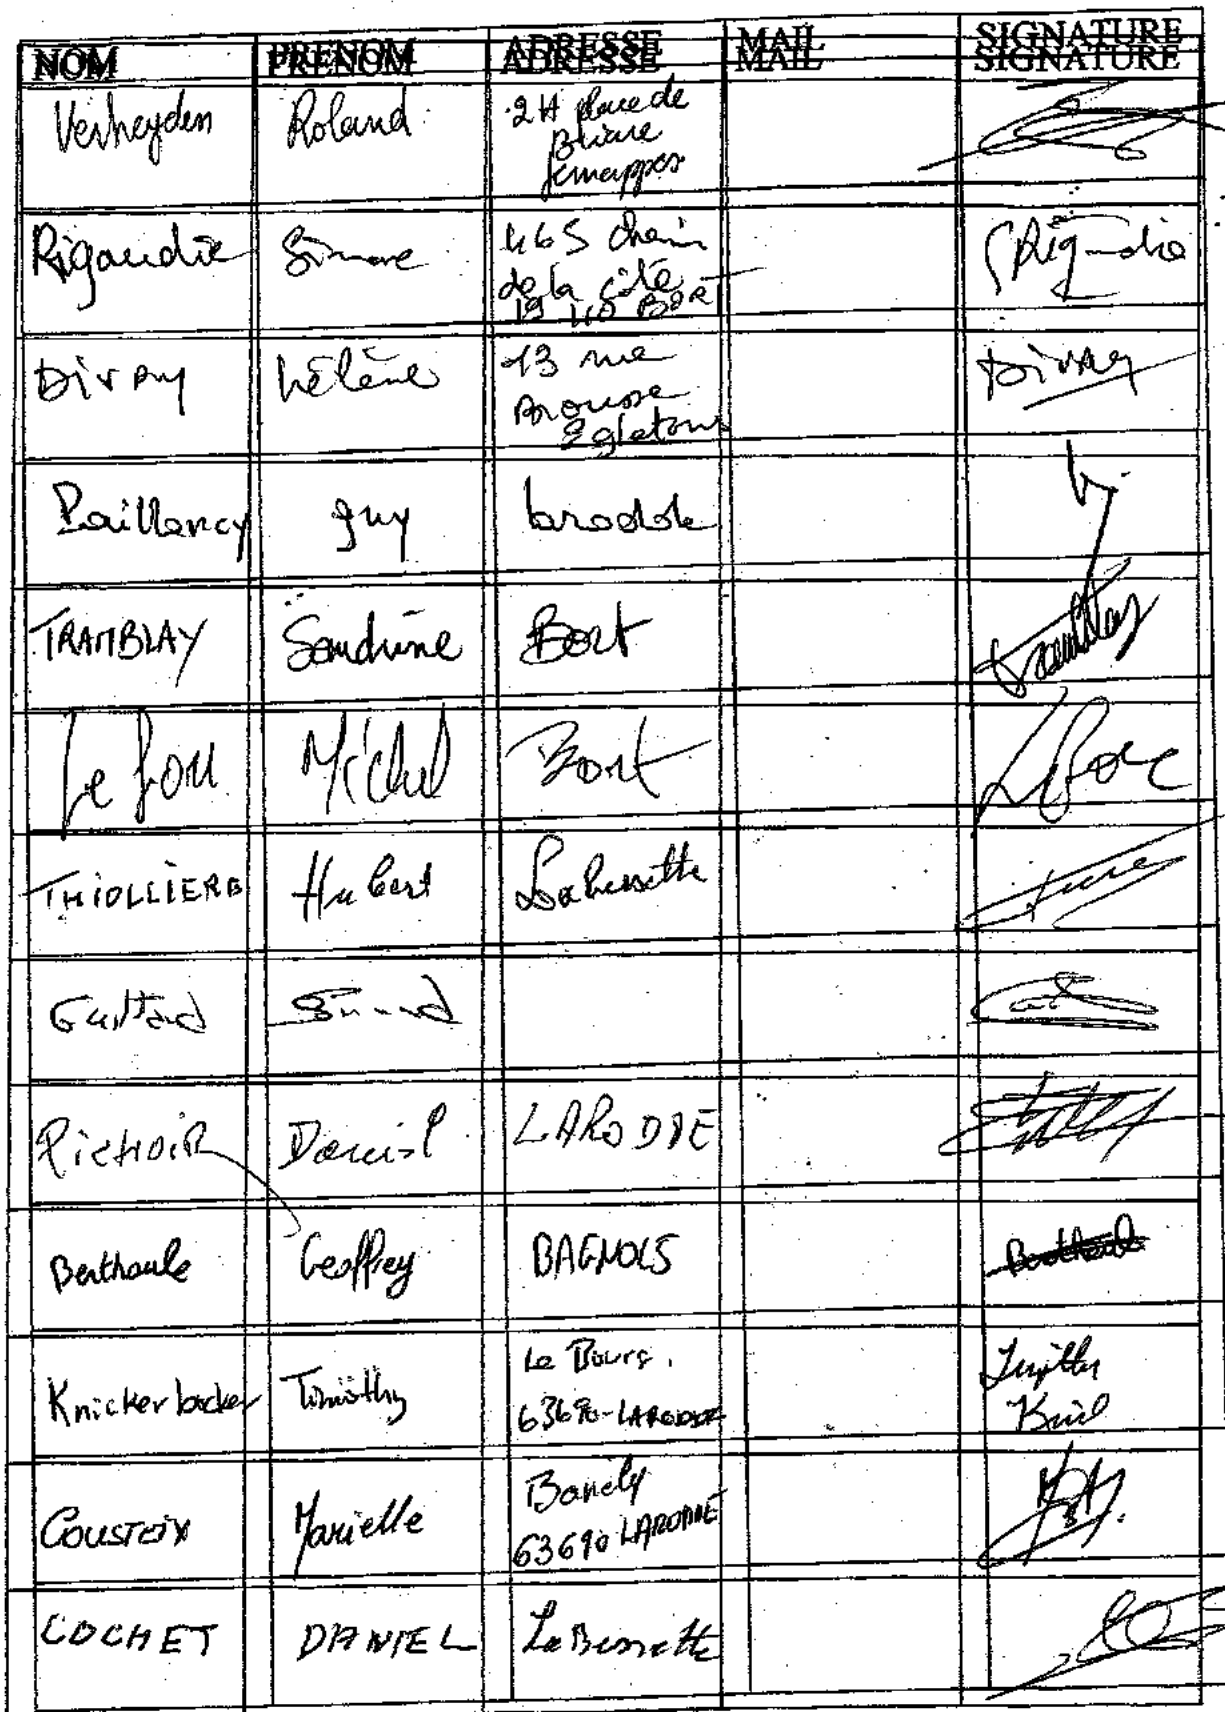 NOM PRENOM ADRESSE MAIL SIGNATURE
NOM PRENOM ADRESSE MAIL SIGNATURE
Verheyden Roland 2H place de
Jemappes
Rigaudie Simone 465 chemin
de la cité
19 110 BORT
Divay hélène 13 rue
Brousse
Egletons
Divay
Pailloncy guy larodde
TRAMBLAY Sandrine Bort Tramblay
Le Fou Michel Bort
THIOLLIERE Hubert Labessette
Guittard
PICHOIR Daniel LARODDE
Berthoule Geoffrey BAGNOLS Berthoule
Knickerbocker Timothy Le Bourg.
63690-LARODDE
COUSTEIX Marielle
63690 LARODDE
COCHET DANIEL LaBessette